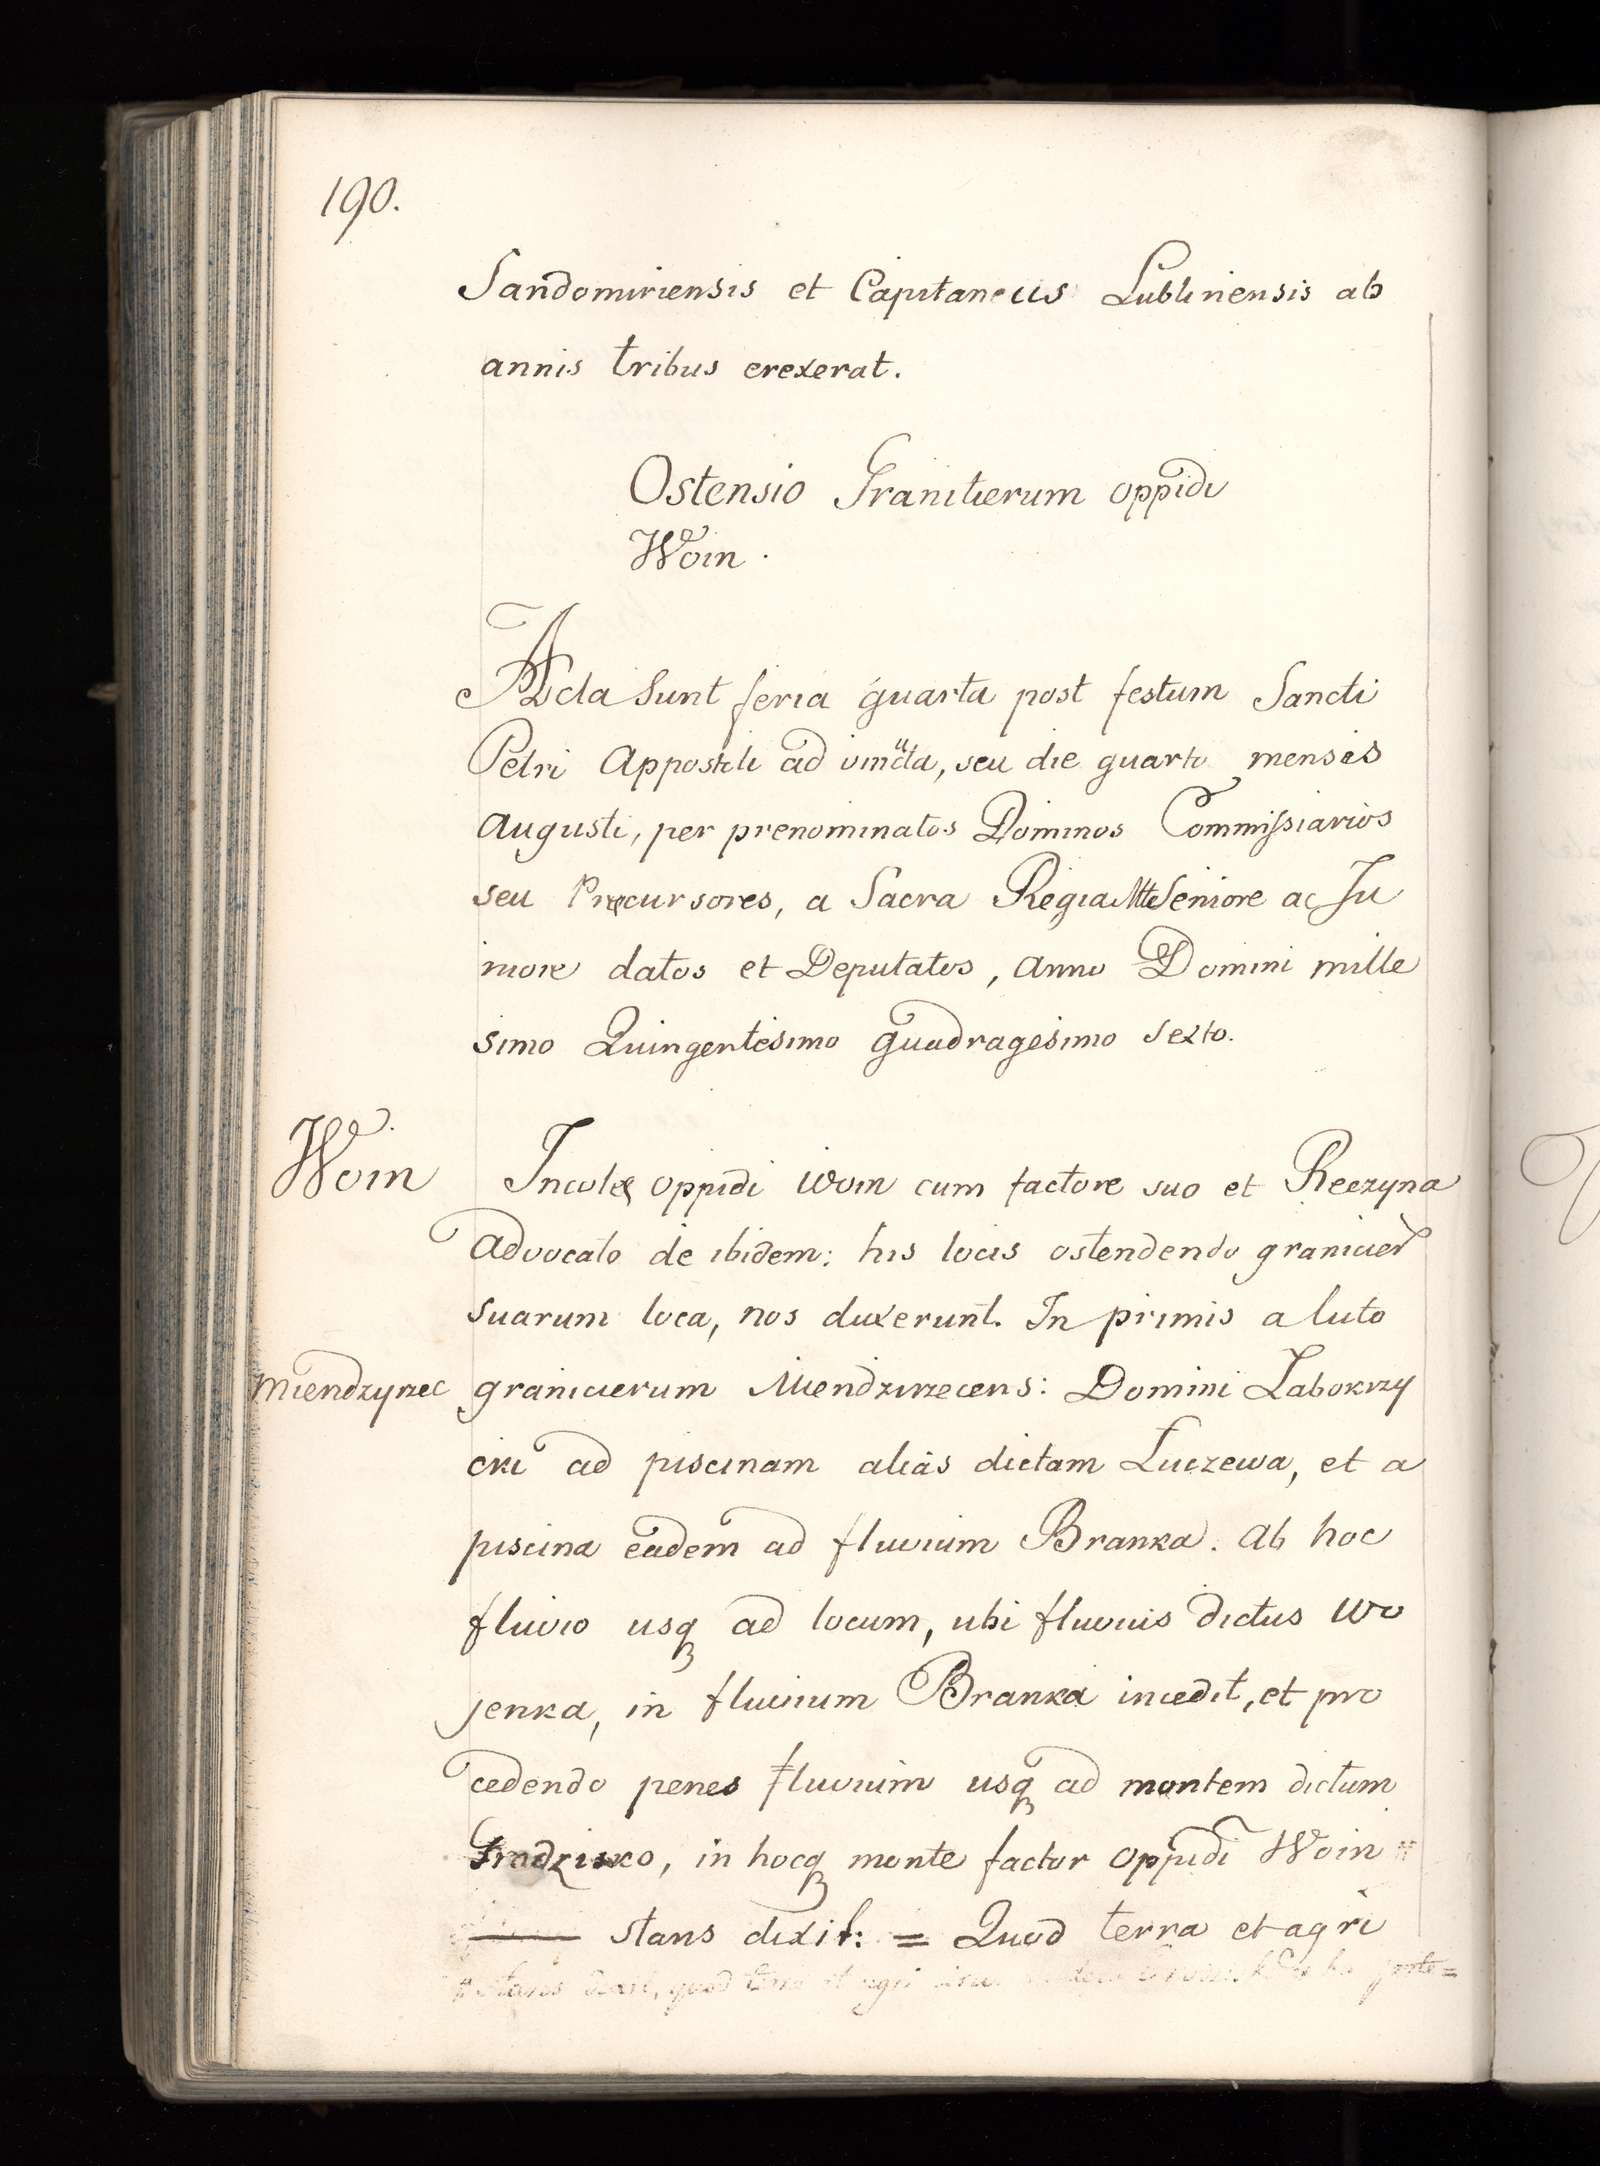 190.
Sandomiriensis et Capitaneus Lublinensis ab
annis tribus erexerat.
Ostensio Granicierum oppidi
Woin.
Acta Sunt feria quarta post festum Sancti
Petri Appostoli ad vincula, seu die quarto mensis
Augusti, per prenominatos Dominos Commissiarios
seu Precursores, a Sacra Regia Mtte Seniore ac Ju
niore datos et Deputatos, anno Domini mille
simo Quingentesimo quadragesimo sexto.
Woin
Incole oppidi Woin cum factore suo et Reczyna
advocato de ibidem: his locis ostendendo granicier
suarum loca, nos duxerunt. In primis a luto
Miendzyrzec
granicierum Miendzirzecens: Domini Zabokrzy
cki ad piscinam alias dictam Luczewa, et a
piscina eadem ad fluvium Branka. Ab hoc
fluvio usq ad locum, ubi fluvius dictus Wo
jenka, in fluvium Branka incedit, et pro
cedendo penes fluvium usq ad montem dictum
Grodzisko, in hocq monte factor oppidi Woin
stans dixit: = Quod terra et agri
stans dixit, quod terra et agri